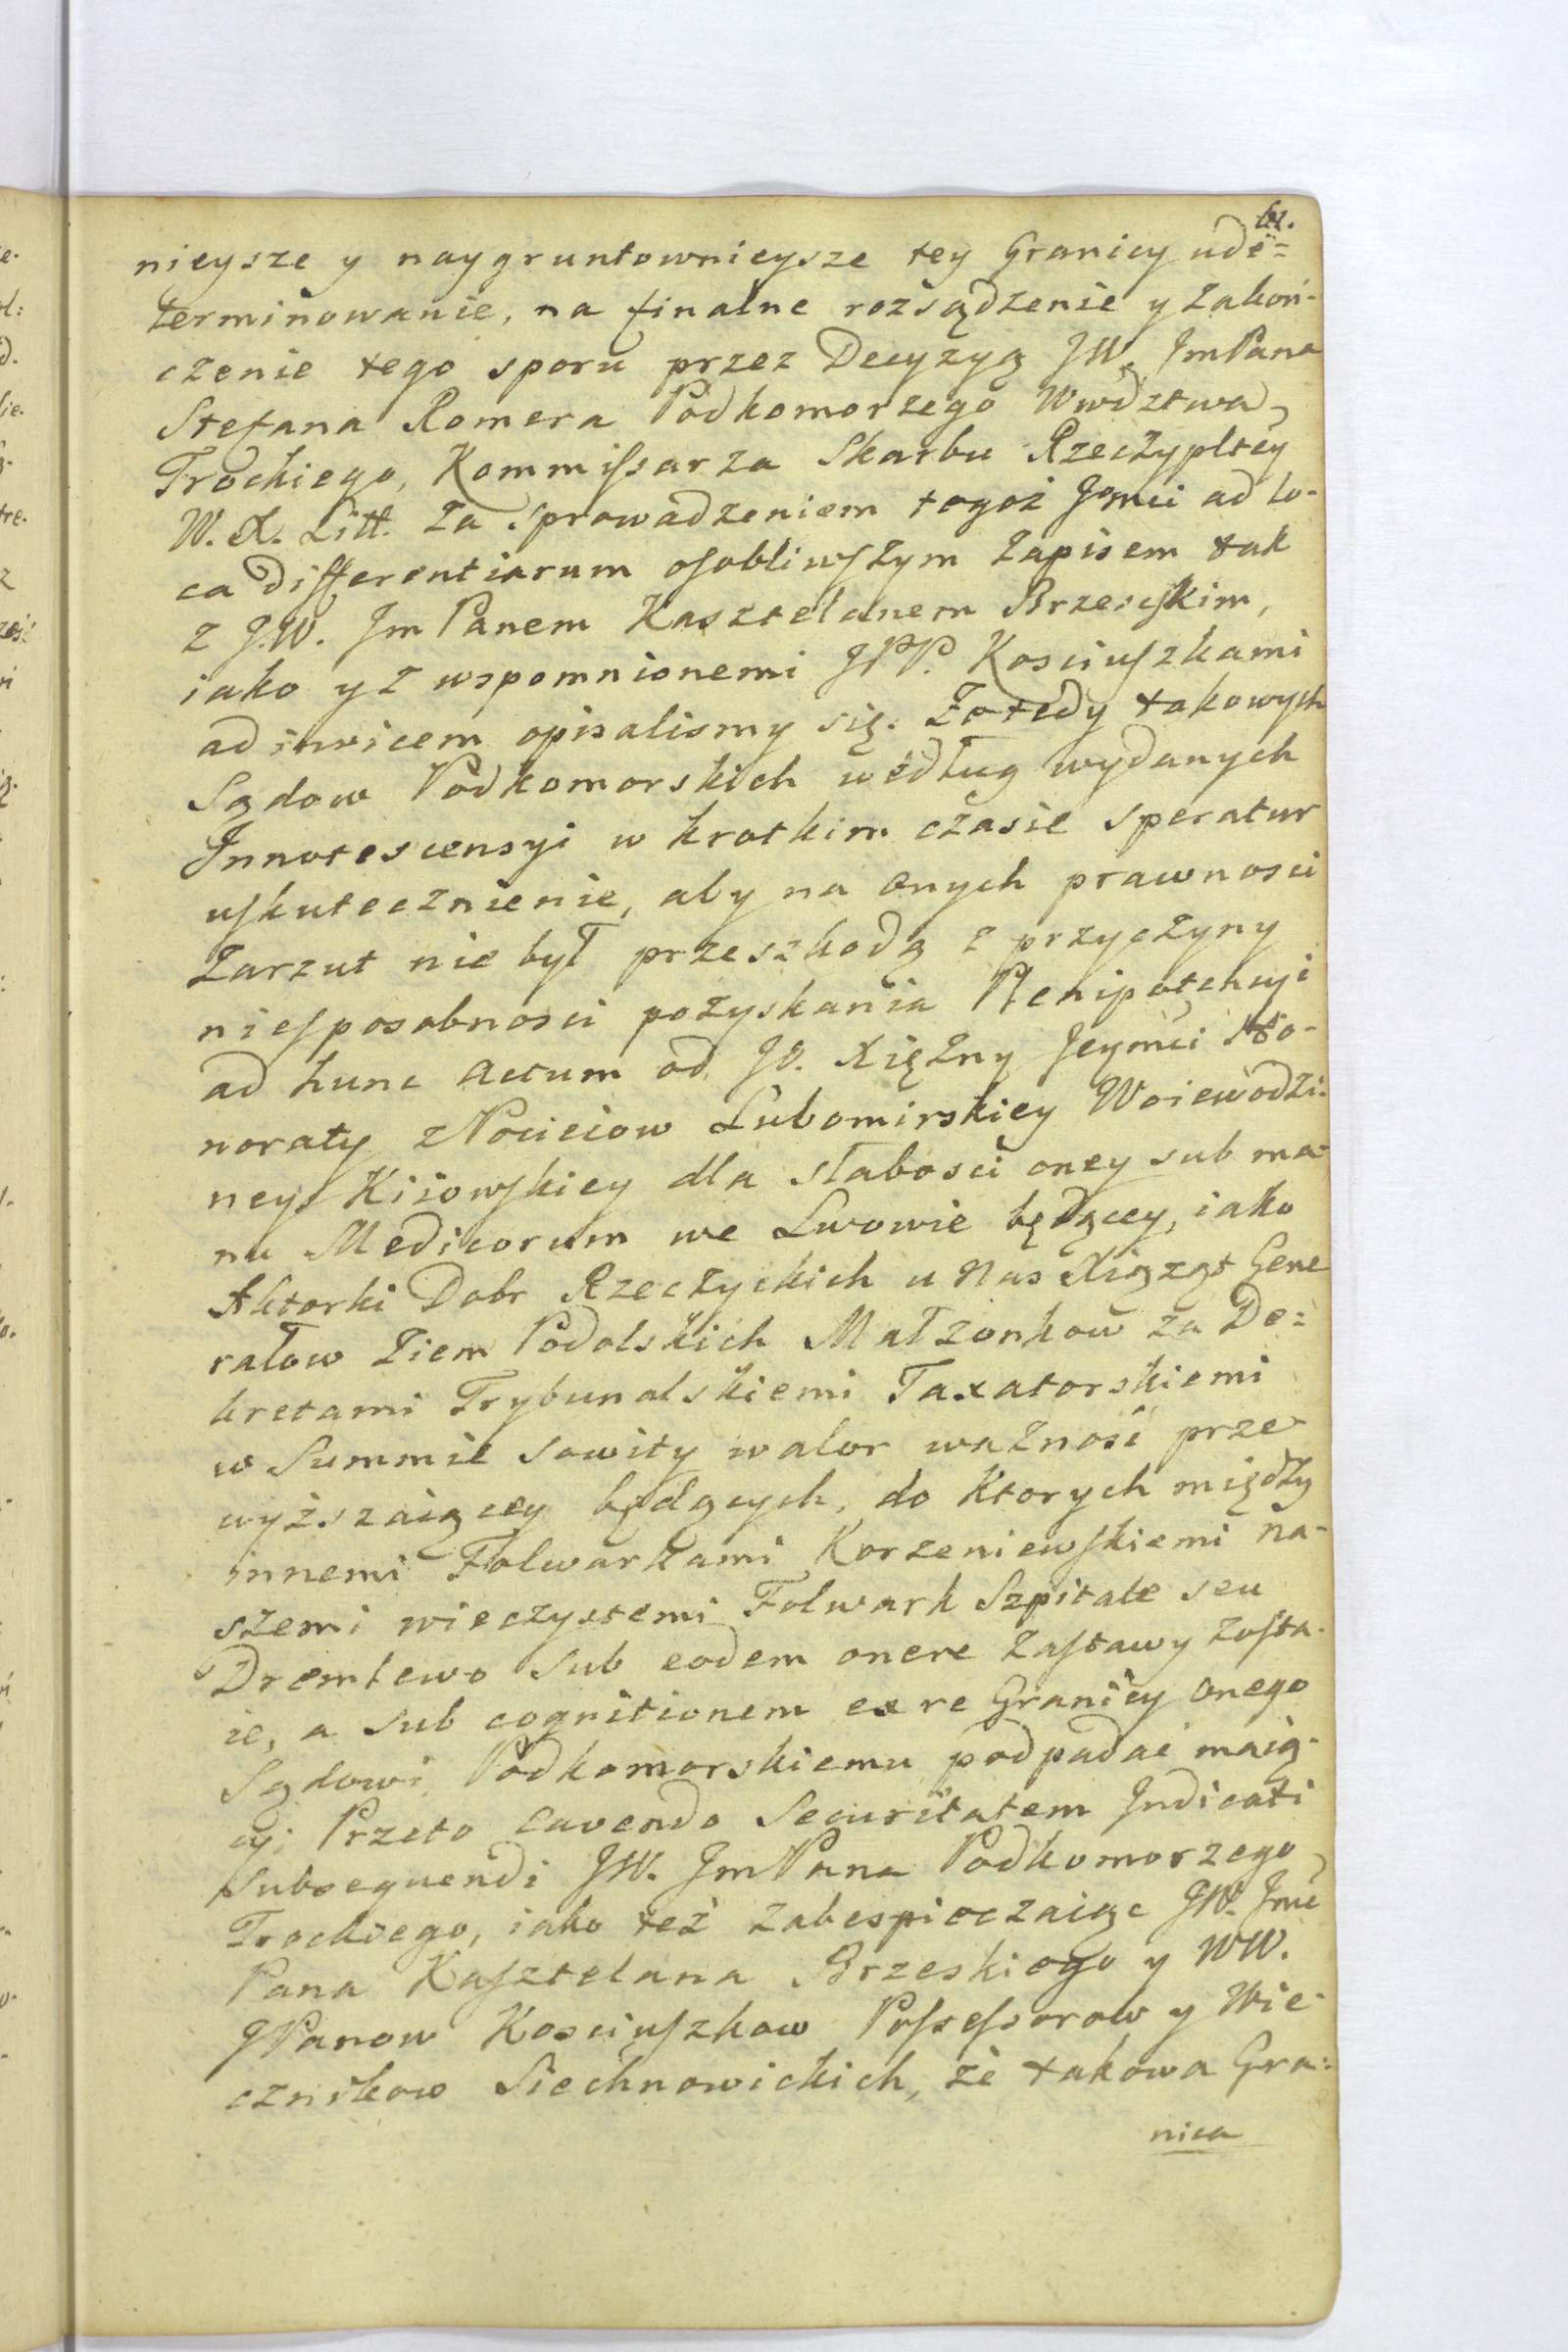 nieysze y naygruntownieysze tey Granicy ude=
terminowanie, na finalne rozsądzenie y zakoń-
czenie tego sporu przez Decyzyą JW. JmPana
Stefana Romera Podkomorzego Wwdztwa
Trockiego, Kommiſsarza Skarbu Rzeczypltey
W. X. Litt. za sprowadzeniem togoż Jomci ad lo-
ca differentiarum oſobliwſzym zapisem tak
z J.W. Jm Panem Kasztelanem Brzesckim,
iako y z wspomnionemi JPP. Kosciuſzkami
ad invicem opisalismy się. Zatedy takowych
Sądow Podkomorskich według wydanych
Innotescensyi w krotkim czasie speratur
uſkutecznienie, aby na onych prawnosci
zarzut nie był przeszkodą z przyczyny
nieſposobnosci pozyskania Plenipotencyi
ad hunc actum od JO. Xiężny Jeymci Ho-
noraty z Pocieiow Lubomirskiey Woiewodzi-
ney Kiiowſkiey dla słabosci oney sub ma-
nu Medicorum we Lwowie będącey, iako
Aktorki Dobr Rzeczyckich u Nas Xiążąt Gene
rałow Ziem Podolskich Małzonkow za De=
kretami Trybunalskiemi Taxatorskiemi
w Summie sowity walor ważność prze-
wyższaiącey będących, do ktorych między
innemi Folwarkami Korzeniewſkiemi na-
szemi wieczystemi Folwark Szpitale seu
Dremlewo sub eodem onere zaſtawy zoſta-
ie, a sub cognitionem ex re Granicy onego
Sądowi Podkomorskiemu podpadać maią-
cy; Przeto cavendo Securitatem Judicati
subsequendi JW. JmPana Podkomorzego
Trockiego, iako też zabespieczaiąc JW. Jmć
Pana Kaſztelana Brzeskiego y WW.
JPanow Kosciuſzkow Poſseſsorow y Wie-
cznikow Siechnowickich, że takowa Gra-
nica